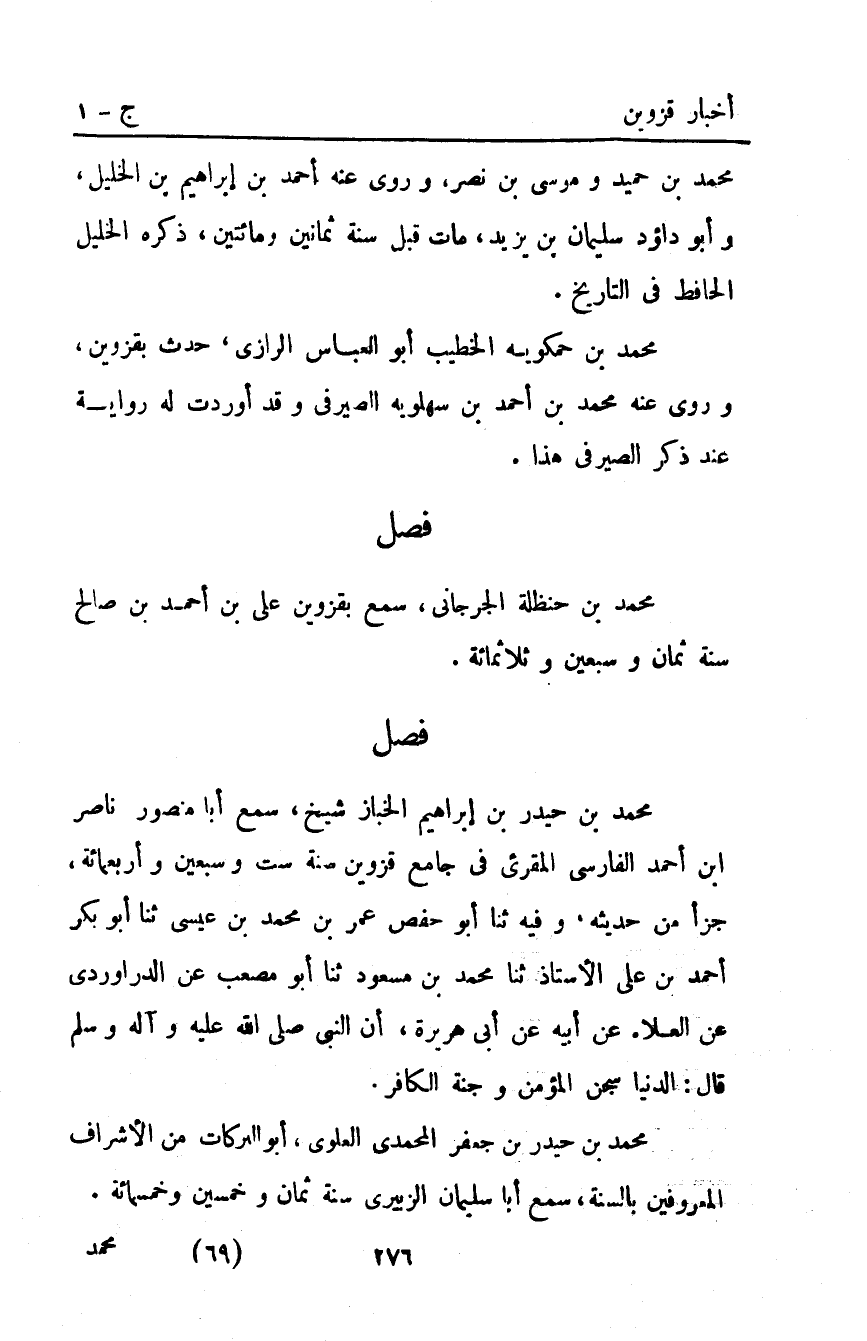 أخبار قزوين ج - ١
محمد بن حميد و موسى بن نصر، و روى عنه أحمد بن إبراهيم بن الخليل،
و أبو داؤد سليمان بن يزيد، مات قبل سنة ثمانين ومائتين، ذكره الخليل
الحافط فى التاريخ .
محمد بن حمكويـه الخطيب أبو العبـاس الرازى، حدث بقزوين،
و روى عنه محمد بن أحمد بن سهلويه االصيرفى و قد أوردت له روايـــة
عند ذكر الصيرفى هذا .
فصل
محمد بن حنظلة الجرجانى، سمع بقزوين على بن أحمـد بن صالح
سنة ثمان و سبعين و ثلاثمائة .
فصل
محمد بن حيدر بن إبراهيم الخباز شيخ، سمع أبا منصور ناصر
ابن أحمد الفارسى المقرئ فى جامع قزوين سنة ست و سبعين و أربعمائة،
جزأ من حديثه، و فيه ثنا أبو حفص عمر بن محمد بن عيسى ثنا أبو بكر
أحمد بن على الأستاذ ثنا محمد بن مسعود ثنا أبو مصعب عن الدراوردى
عن العـلاء عن أبيه عن أبى هريرة، أن النبى صلى الله عليه و آله و سلم
قال: الدنيا سجن المؤمن و جنة الكافر .
محمد بن حيدر بن جعفر المحمدى العلوى، أبو البركات من الأشراف
المعروفين بالسنة، سمع أبا سليمان الزبيرى سنة ثمان و خمسين وخمسمائة .
٢٧٦ (٦٩) محمد